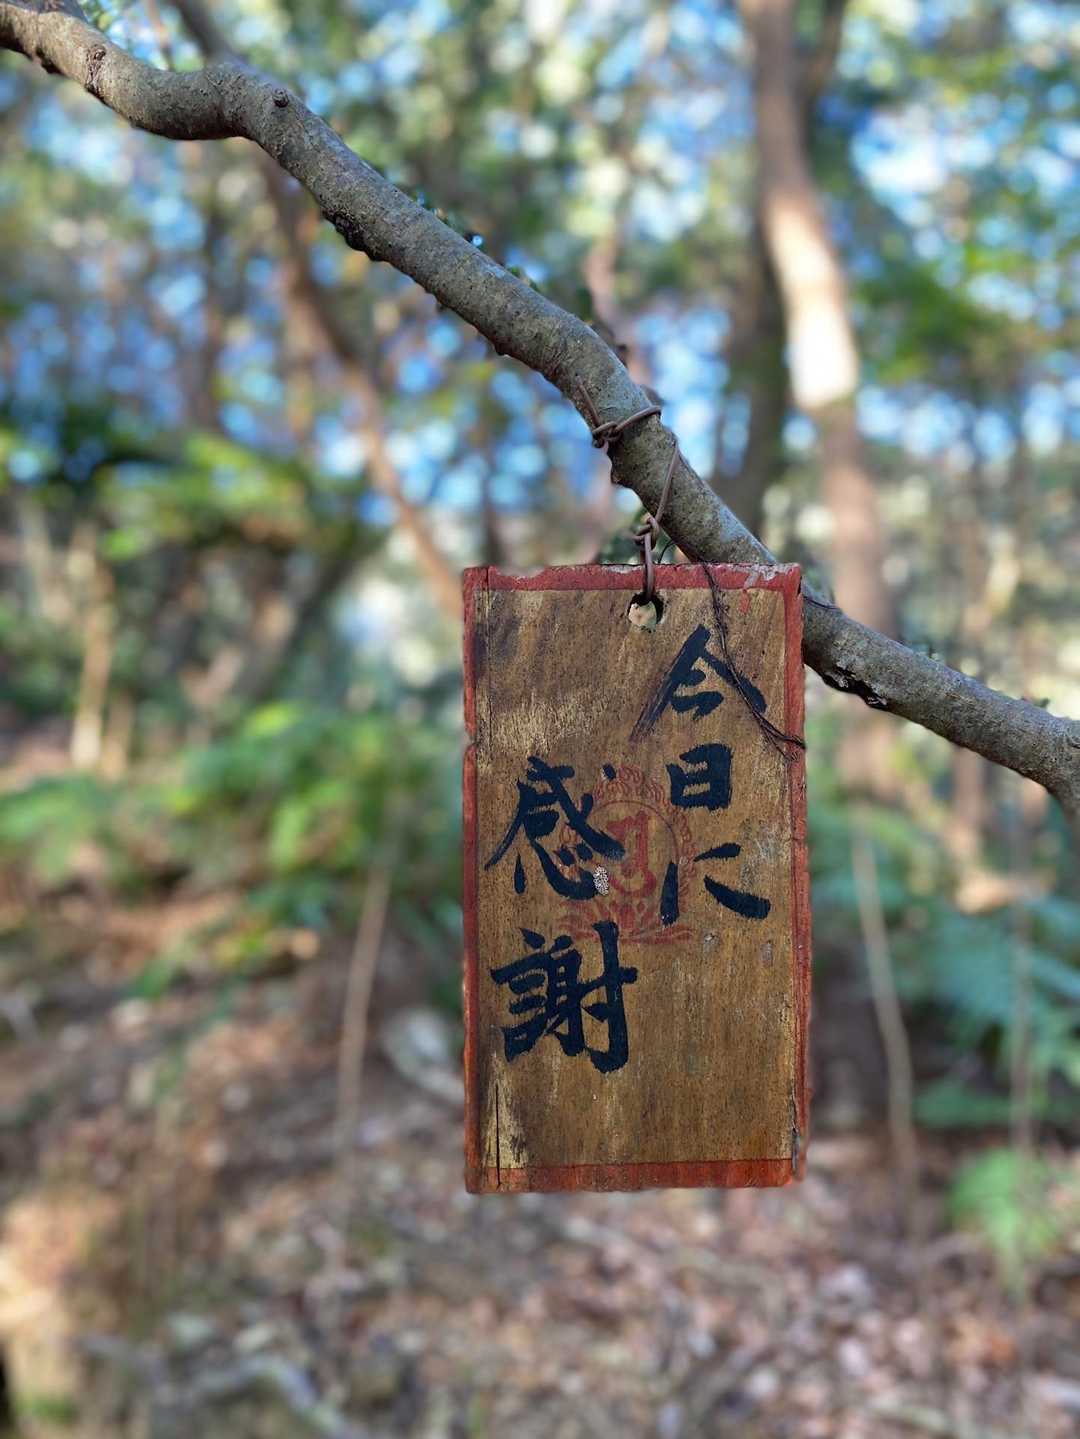 今日に
感謝